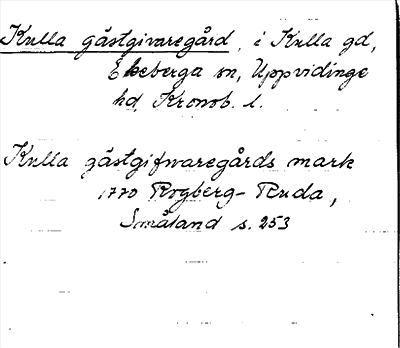 Kulla gästgivaregård, i Kulla gd,
Ekeberga sn, Uppvidinge
hd, Kronob. l.
Kulla gästgifwaregårds mark
1770 Rogberg-Ruda,
Småland s. 253